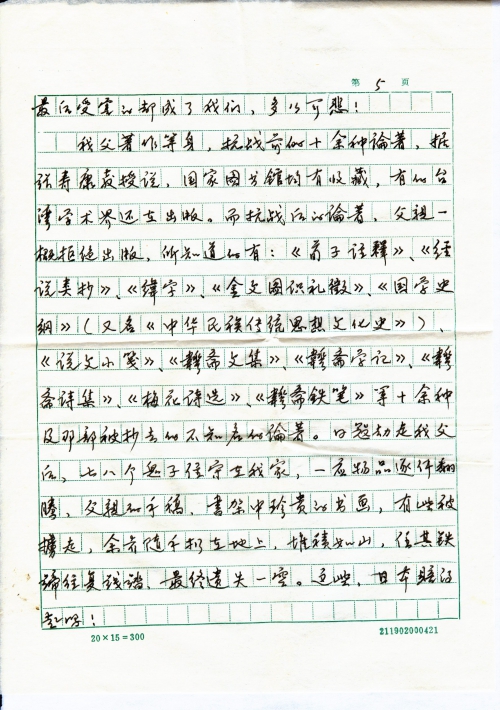 第 5 页
最后受害的却成了我们，多么可悲！
我父著作等身，抗战前的十余种论著，据
张寿康教授说，国家图书馆均有收藏，有的台
湾学术界还在出版。而抗战后的论著，父亲一
概拒绝出版，所知道的有：《荀子诂释》、《经
说类抄》、《纬字》、《金文图识礼徵》、《国学史
纲》（又名《中华民族传统思想文化史》）、
《说文小笺》、《斋文集》、《斋学记》、《
斋诗集》、《梅花诗选》、《斋铁笔》等十余种
及那部被抄去的不知名的论著。日寇劫走我父
后，七八个鬼子住宿在我家，一应物品逐件翻
腾，父亲的手稿，书架中珍贵的书画，有些被
攫走，余者随手扔在地上，堆积如山，任其铁
蹄往复践踏，最终遗失一空。这些，日本赔得
起吗！
20×15=300
211902000421